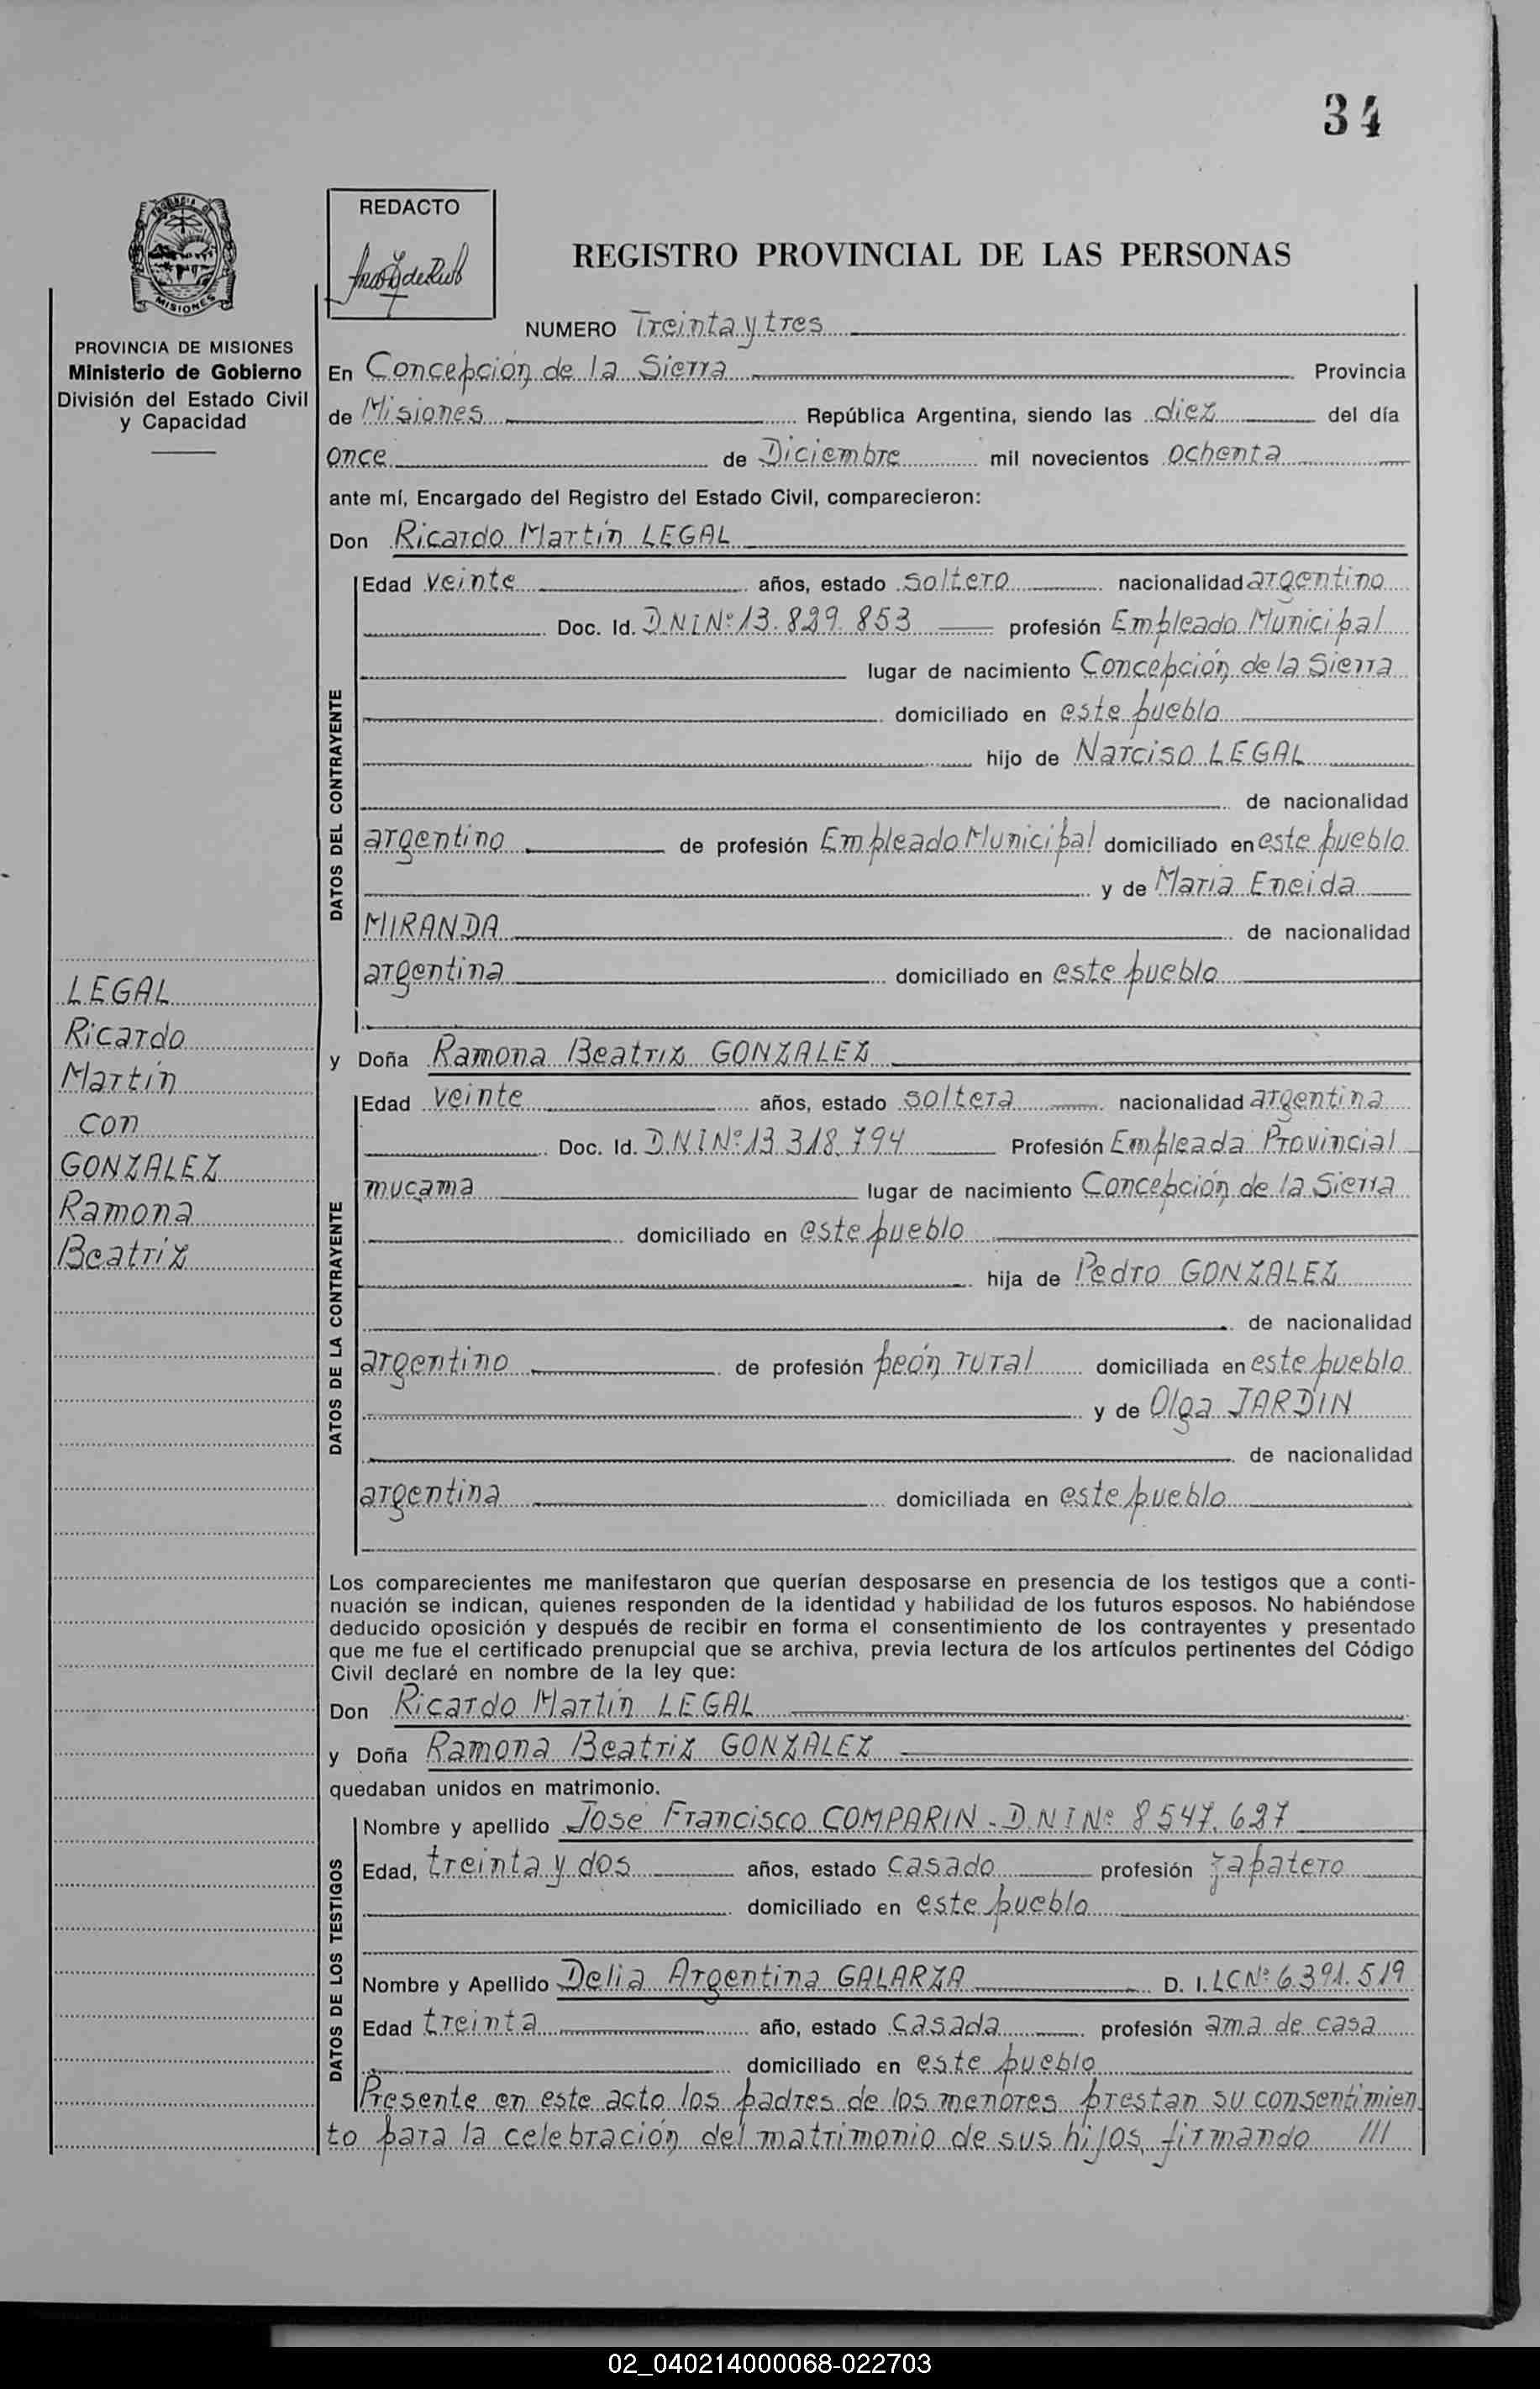 34
REDACTO
REGISTRO PROVINCIAL DE LAS PERSONAS
MISIONES
PROVINCIA DE MISIONES
Ministerio de Gobierno
División del Estado Civil
y Capacidad
NUMERO Treinta y tres
En Concepción de la Sierra Provincia
de Misiones República Argentina, siendo las diez del día
once de Diciembre mil novecientos ochenta
ante mí, Encargado del Registro del Estado Civil, comparecieron:
Don Ricardo Martín LEGAL
DATOS DEL CONTRAYENTE
Edad veinte años, estado soltero nacionalidad argentino
Doc. Id. D.N.I.Nº 13.829.853 profesión Empleado Municipal
lugar de nacimiento Concepción de la Sierra
domiciliado en este pueblo
hijo de Narciso LEGAL
de nacionalidad
argentino de profesión Empleado Municipal domiciliado en este pueblo
y de María Eneida
MIRANDA de nacionalidad
argentina domiciliado en este pueblo
LEGAL
Ricardo
Martín
con
GONZALEZ
Ramona
Beatriz
y Doña Ramona Beatriz GONZALEZ
DATOS DE LA CONTRAYENTE
Edad veinte años, estado soltera nacionalidad argentina
Doc. Id. D.N.I.Nº 13.318.794 Profesión Empleada Provincial
mucama lugar de nacimiento Concepción de la Sierra
domiciliado en este pueblo
hija de Pedro GONZALEZ
de nacionalidad
argentino de profesión peón rural domiciliada en este pueblo
y de Olga JARDIN
de nacionalidad
argentina domiciliada en este pueblo
Los comparecientes me manifestaron que querían desposarse en presencia de los testigos que a conti-
nuación se indican, quienes responden de la identidad y habilidad de los futuros esposos. No habiéndose
deducido oposición y después de recibir en forma el consentimiento de los contrayentes y presentado
que me fue el certificado prenupcial que se archiva, previa lectura de los artículos pertinentes del Código
Civil declaré en nombre de la ley que:
Don Ricardo Martín LEGAL
y Doña Ramona Beatriz GONZALEZ
quedaban unidos en matrimonio.
DATOS DE LOS TESTIGOS
Nombre y apellido José Francisco COMPARIN - D.N.I.Nº 8.547.627
Edad, treinta y dos años, estado casado profesión zapatero
domiciliado en este pueblo
Nombre y Apellido Delia Argentina GALARZA D. I. LC Nº 6.391.519
Edad treinta año, estado casada profesión ama de casa
domiciliado en este pueblo
Presente en este acto los padres de los menores prestan su consentimien
to para la celebración del matrimonio de sus hijos, firmando ///
02_040214000068-022703